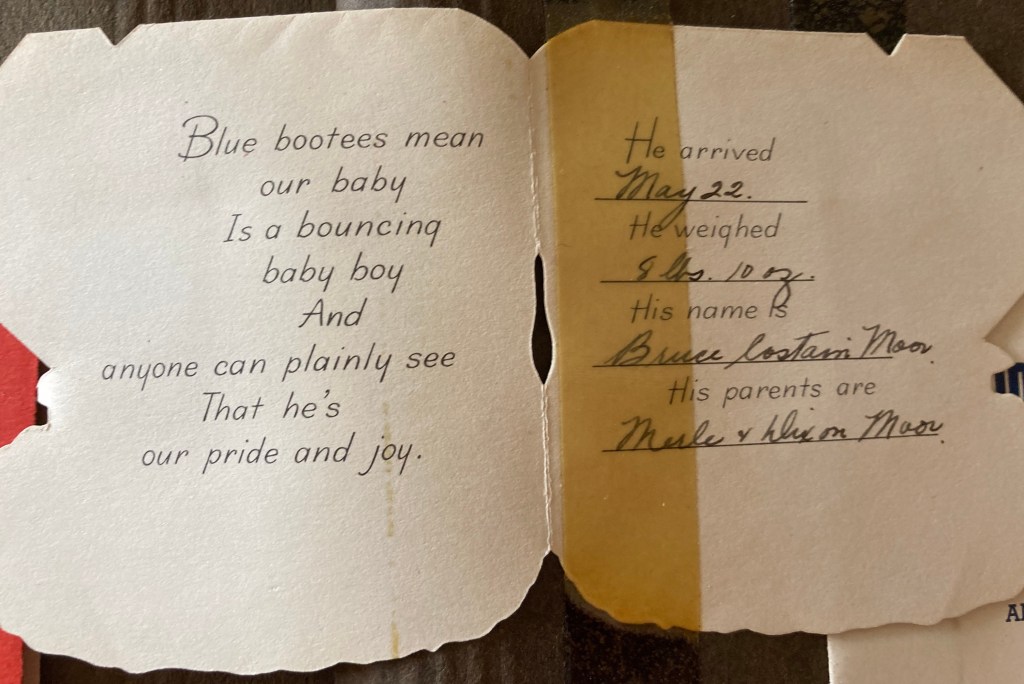 Blue bootees mean
our baby
Is a bouncing
baby boy
And
anyone can plainly see
That he's
our pride and joy.
He arrived
May 22.
He weighed
8 lbs. 10 oz.
His name is
Bruce Costain Moor.
His parents are
Merle & Dixon Moor.